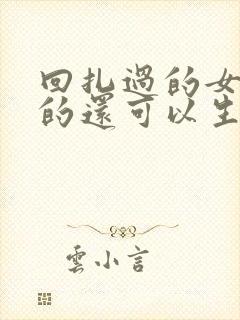 回扎過的女
的還可以生
雲小言